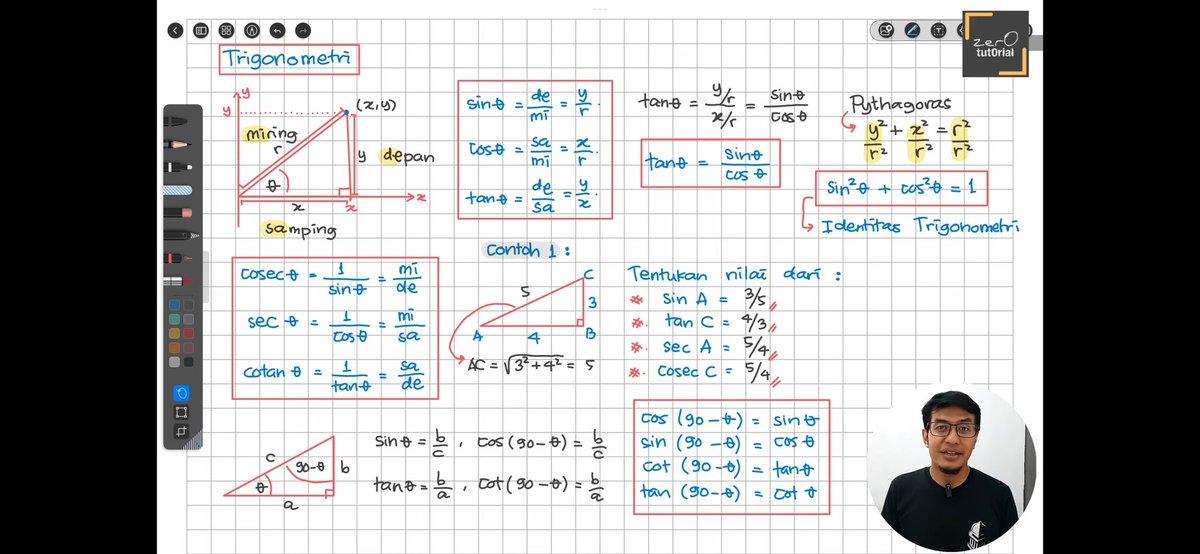 zerO
tutOrial
Trigonometri
y
y
(x,y)
miring
r
y depan
θ
x
x
x
samping
sin θ = de/mi = y/r.
cos θ = sa/mi = x/r.
tan θ = de/sa = y/x.
tan θ = (y/r)/(x/r) = sin θ/cos θ
tan θ = sin θ/cos θ
Pythagoras
y²/r² + x²/r² = r²/r²
sin²θ + cos²θ = 1
Identitas Trigonometri
cosec θ = 1/sin θ = mi/de
sec θ = 1/cos θ = mi/sa
cotan θ = 1/tan θ = sa/de
Contoh 1 :
C
5
3
A
4
B
AC = √3² + 4² = 5
Tentukan nilai dari :
*. sin A = 3/5
*. tan C = 4/3
*. sec A = 5/4
*. cosec C = 5/4
c
90-θ
b
θ
a
sin θ = b/c , cos (90 - θ) = b/c
tan θ = b/a , cot (90 - θ) = b/a
cos (90 - θ) = sin θ
sin (90 - θ) = cos θ
cot (90 - θ) = tan θ
tan (90 - θ) = cot θ